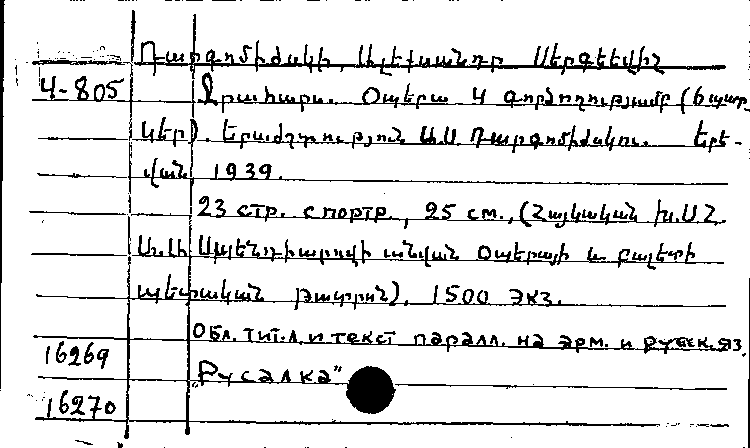 Դարգոմիժսկի, Ալեքսանդր Սերգեևիչ
4-805 Ջրահարս. Օպերա 4 գործողությամբ (6 պատ
կեր). Երաժշտություն Ա.Ս. Դարգոմիժսկու. Երե-
վան, 1939.
23 стр. с портр., 25 см., (Հայկական Խ.Ս.Հ.
Ա.Ա. Սպենդիարովի անվան Օպերայի և բալետի
պետական թատրոն). 1500 экз.
Обл. тит. л. и текст паралл. на арм. и русск. яз.
16269 „Русалка"
16270